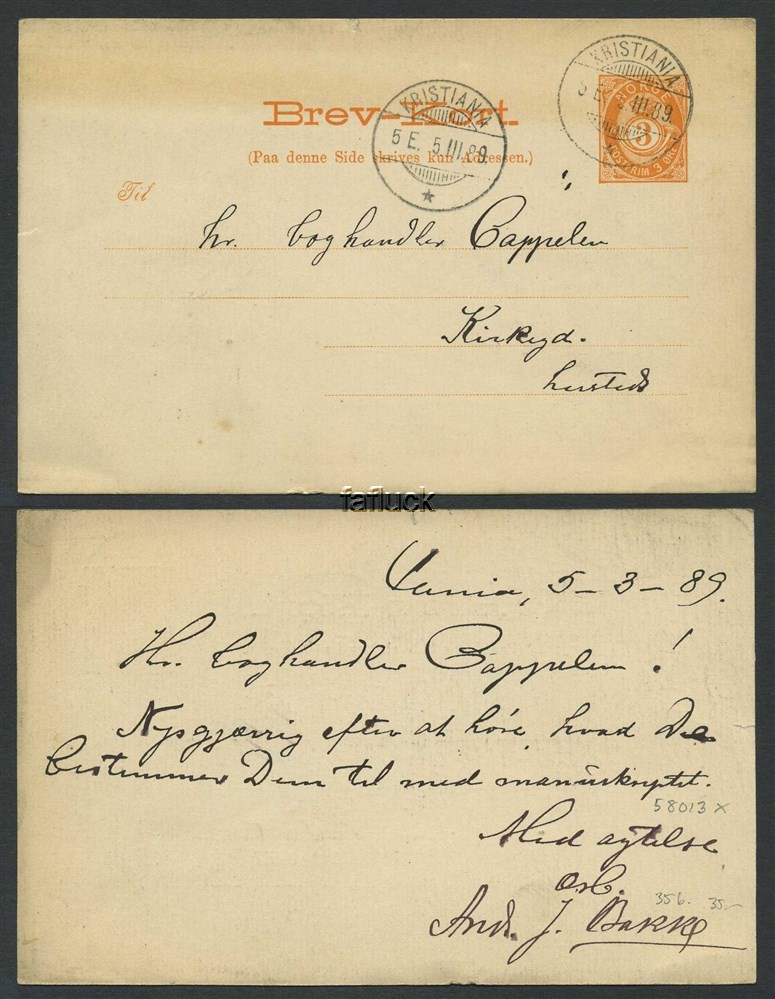 KRISTIANIA
5 E. 5 III 89.
KRISTIANIA
5 E. 5 III 89.
NORGE
3
POSTFRIM 3 ØRE
Brev-Kort.
(Paa denne Side skrives kun Adressen.)
Til
hr. boghandler Cappelen
Kirkegd.
fafluck
5–3–89.
Hr. boghandler Cappelen!
Nysgjærrig efter at höre, hvad De
bestemmer Dem til med manuskriptet.
58013 x
Med agtelse
356. 35–
And. J. Bakke